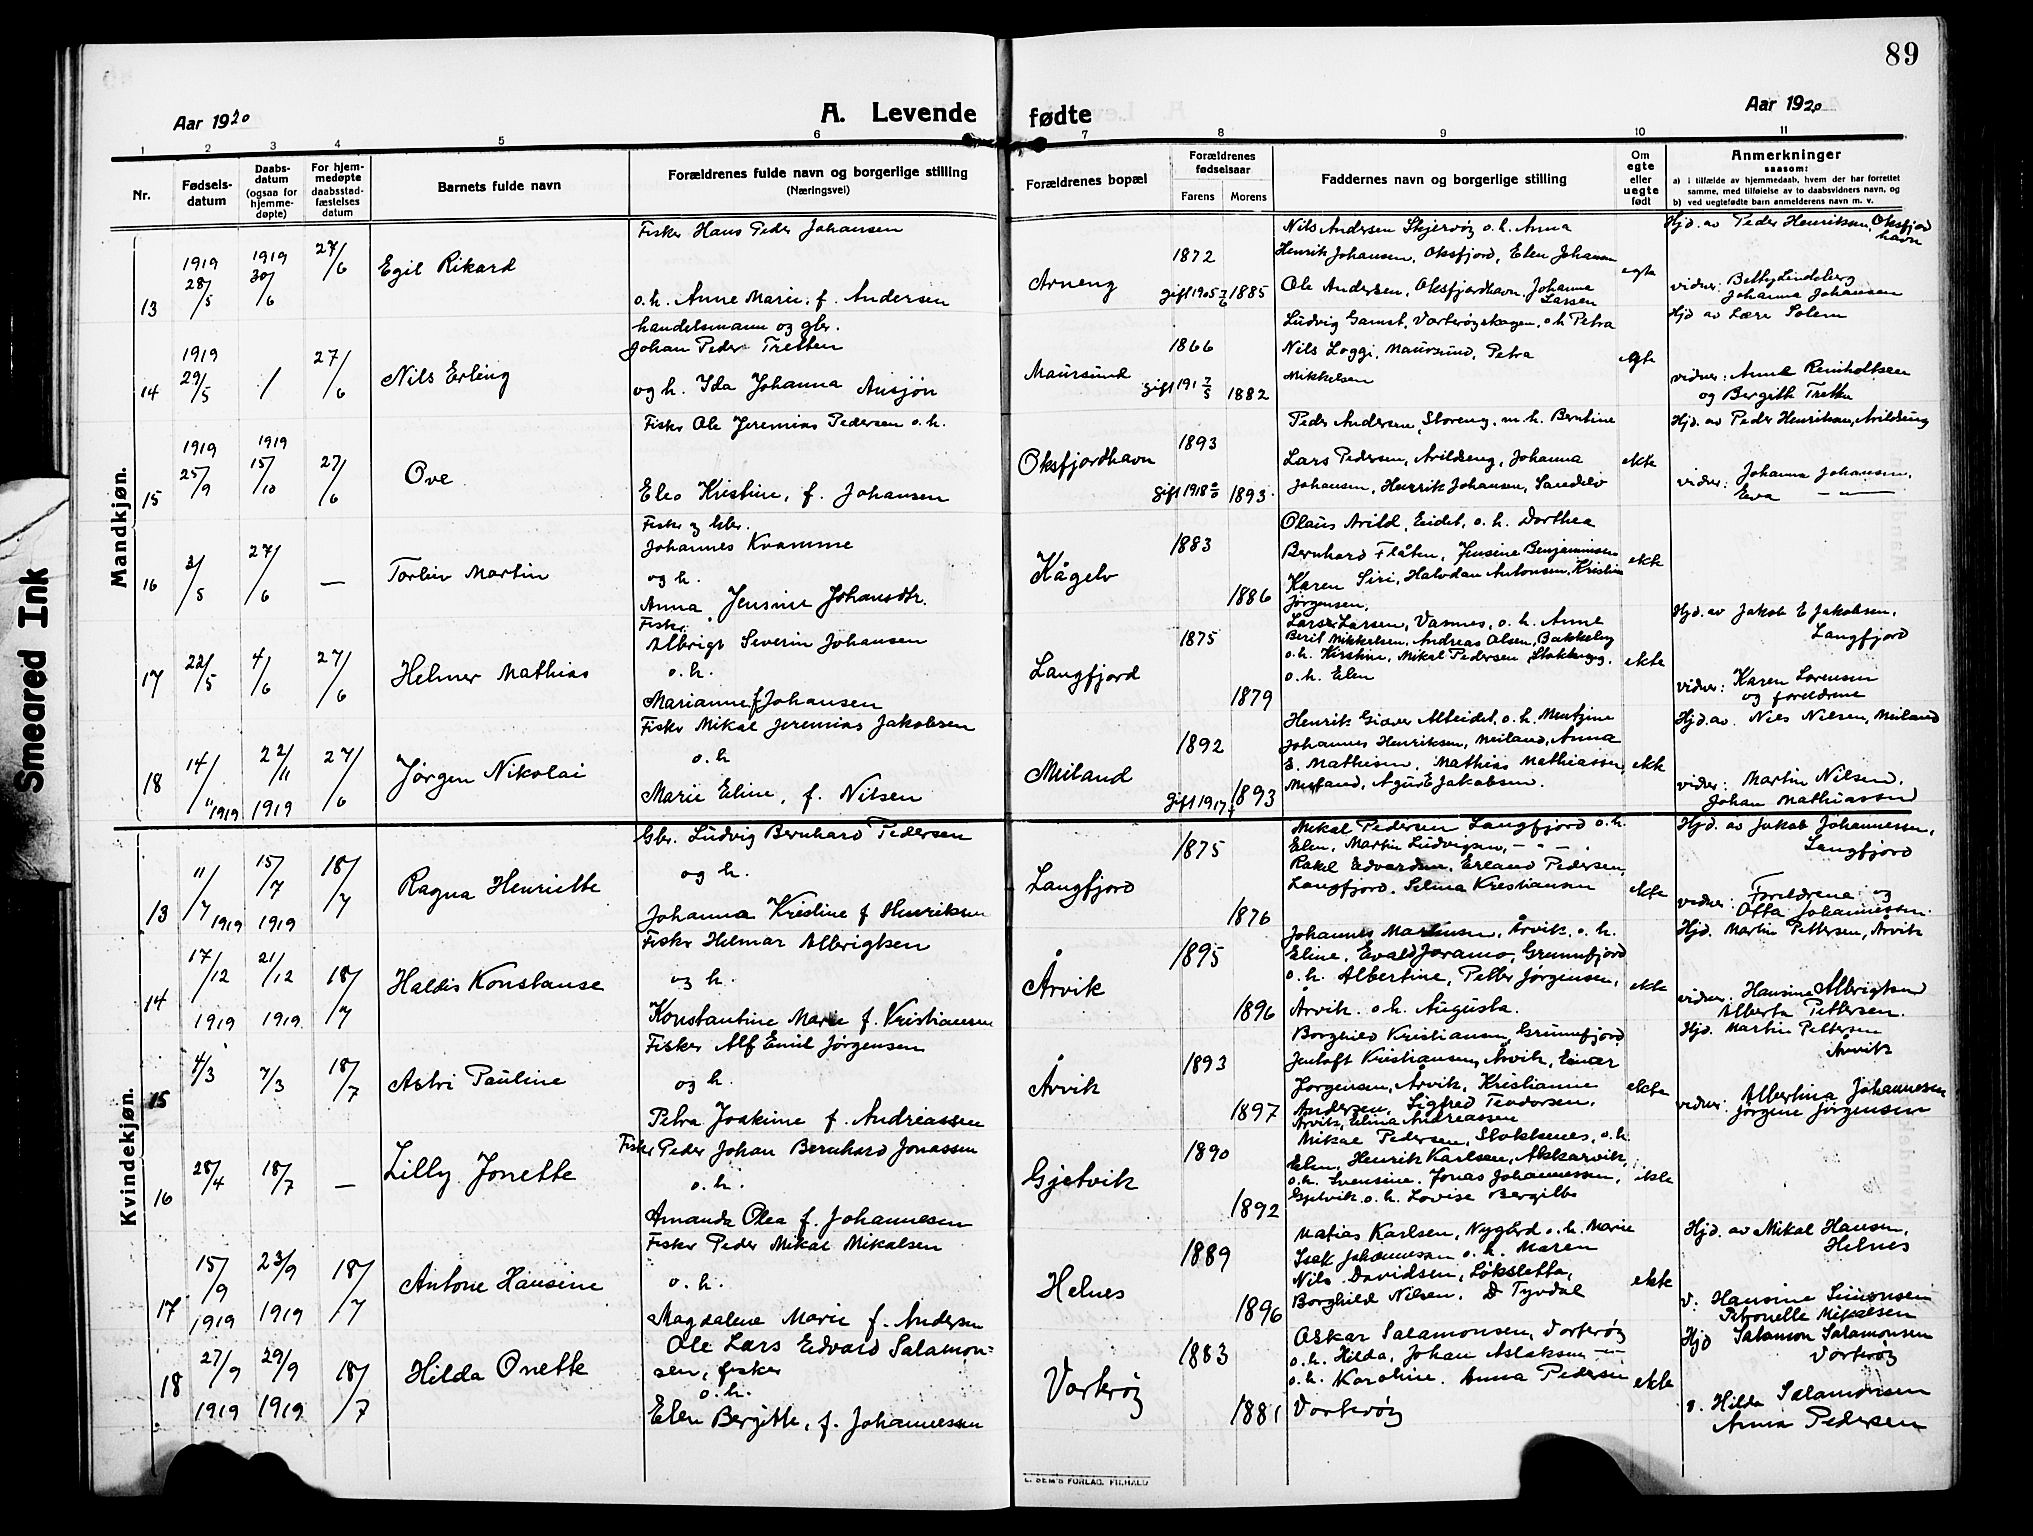 89
Aar 1920
A. Levende
fødte
Aar 1920
1 2 3 4 5 6 7 8 9 10 11
Nr.
Fødsels-
datum
Daabs-
datum
(ogsaa for
hjemme-
døpte)
For hjem-
medøpte
daabsstad-
fæstelses
datum
Barnets fulde navn
Forældrenes fulde navn og borgerlige stilling
(Næringsvei)
Forældrenes bopæl
Forældrenes
fødselsaar
Farens Morens
Faddernes navn og borgerlige stilling
Om
egte
eller
uegte
født
Anmerkninger
saasom:
a) i tilfælde av hjemmedaab, hvem der har forrettet
samme, med tilføielse av to daabsvidners navn, og
b) ved uegtefødte barn anmelderens navn m. v.
Smeared Ink
Mandkjøn.
13
1919
28/5
1919
30/6
27/6
Egil Rikard
Fisker Hans Peder Johansen
o.h. Anne Marie, f. Andersen
Arneng
1872
gift 1905 1885
Nils Andersen Skjervøy o.h. Anna
Henrik Johansen, Oksfjord, Elen Johansen
Ole Andersen, Oksfjordhavn. Johanna
Larsen
egte
Hjd. av Peder Henriksen, Oksfjord
havn
vidner: Betty Lindeberg
Johanna Johansen
14
1919
29/5
/
27/6
Nils Erling
handelsmann og gbr.
Johan Peder Tretten
og h. Ida Johanna Ansjøn
Maursund
1866
gift 191 1882
Ludvig Gamst, Vorterøyskagen, o.h. Petra
Nils Loggi, Maursund, Petra
Mikkelsen
egte
Hjd av Lære Solem
vidner: Anna Reinholtsen
og Bergith Tretten
15
1919
25/9
1919
15/10
27/6
Ove
Fisker Ole Jeremias Pedersen o.h.
Eleo Kristine, f. Johansen
Oksfjordhavn
1893
gift 1918 1893
Peder Andersen, Storeng, m.h. Berntine
Lars Pedersen, Arildseng, Johanna
Johansen, Henrik Johansen, Sandelv
ekte
Hjd. av Peder Henriksen, Arildseng
vidner: Johanna Johansen,
Eva — " —
16
3/5
27/6
—
Torleiv Martin
Fisker og gbr.
Johannes Kvamme
og h.
Anna Jensine Johansdtr.
Kågelv
1883
1886
Olaus Arild, Eidet, o.h. Dorthea
Bernhard Flåten, Jensine Benjaminsen
Karen Siri, Halvdan Antonsen, Kristine
Jørgensen.
ekte
17
22/5
4/6
27/6
Helmer Mathias
Fisker
Albrigt Severin Johansen
o.h.
Marianne f Johansen
Langfjord
1875
1879
Lars Larsen, Vasnes, o.h. Anne
Beril Mikkelsen, Andreas Olsen, Bakkeby
o.h. Kirstine, Mikal Pedersen, Stokkenes.
o.h. Elen
ekte
Hjd. av Jakob E Jakobsen,
Langfjord
vidner: Karen Lorensen
og foreldrene
18
14/11 1919
22/11
1919
27/6
Jørgen Nikolai
Fisker Mikal Jeremias Jakobsen
o.h
Marie Eline, f. Nilsen
Meiland
1892
gift 1917 1893
Henrik Giæver Alteidet, o.h. Mentzine
Johannes Henriksen, Meiland, Anna
E. Mathisen, Mathias Mathiassen,
Meiland, Agne E Jakobsen.
ekte
Hjd. av. Nils Nilsen, Meiland
vidner: Martin Nilsen,
Johan Mathiassen
Kvindekjøn.
13
11/7 1919
15/7
1919
18/7
Ragna Henriette
Gbr. Ludvig Bernhard Pedersen
og h.
Johanna Kristine f Henriksen
Langfjord
1875
1876
Mikal Pedersen Langfjord o.h.
Elen, Martin Ludvigsen, — " — .
Rakel Edvardsen, Erland Pedersen,
Langfjord, Selma Kristiansen
ekte
Hjd. av Jakob Johannessen,
Langfjord
vidner: Foreldrene og
Otta Johannessen.
14
17/12
1919
21/12
1919
18/7
Haldis Konstanse
Fisker Helmar Albrigtsen
og h.
Konstantine Marie f. Kristiansen
Årvik
1895
1896
Johannes Martinsen, Årvik, o.h.
Eline, Evald Joramo, Grunnfjord
o.h. Albertine, Petter Jørgensen,
Årvik. o.h. Augusta.
ekte
Hjd. Martin Pettersen, Årvik
vidner: Hansine Albrigtsen
Alberta Pettersen.
15
4/3
7/3
18/7
Astri Pauline
Fisker Alf Emil Jørgensen
og h.
Petra Joakime f. Andreassen
Årvik
1893
1897
Borghild Kristiansen, Grunnfjord
Jentoft Kristiansen, Årvik, Einar
Jørgensen, Årvik, Kristianne
Andersen, Sigfred Teodorsen,
Årvik, Elina Andreassen
ekte
Hjd. Martin Pettersen
Årvik
vidner: Albertina Johannessen
Jørgine Jørgensen
16
28/4
18/7
—
Lilly Jonette
Fisker Peder Johan Bernhard Jonassen
o.h.
Amanda Olea f. Johannesen
Gjetvik
1890
1892
Mikal Pedersen, Stokkenes, o.h.
Elen, Henrik Karlsen, Akkarvik,
o.h. Svensine. Jonas Johannessen,
Gjetvik o.h. Lovise Bergitte
ekte
17
15/9
1919
23/9
1919
18/7
Antone Hansine
Fisker Peder Mikal Mikalsen
o.h.
Magdalene Marie f. Andersen
Helnes
1889
1896
Matias Karlsen, Nygård o.h. Marie
Isak Johannessen o.h. Maren
Nils Davidsen, Løksletta,
Borghild Nilsen, D Tyvdal
ekte
Hjd. av Mikal Hansen,
Helnes
v: Hansine Simonsen
Petronelle Mikalsen
18
27/9
1919
29/9
1919
18/7
Hilda Onette
Ole Lars Edvard Salamon-
sen, fisker
o.h.
Elen Bergitte, f. Johannessen
Vorterøy
1883
1881
Oskar Salamonsen, Vorterøy
o.h. Hilda, Johan Aslaksen — " —
o.h. Karoline. Anna Pedersen
Vorterøy
ekte
Hjd Salamon Salamonsen
Vorterøy
v. Hilda Salamonsen
Anna Pedersen
E. SEM'S FORLAG, FR.HALD